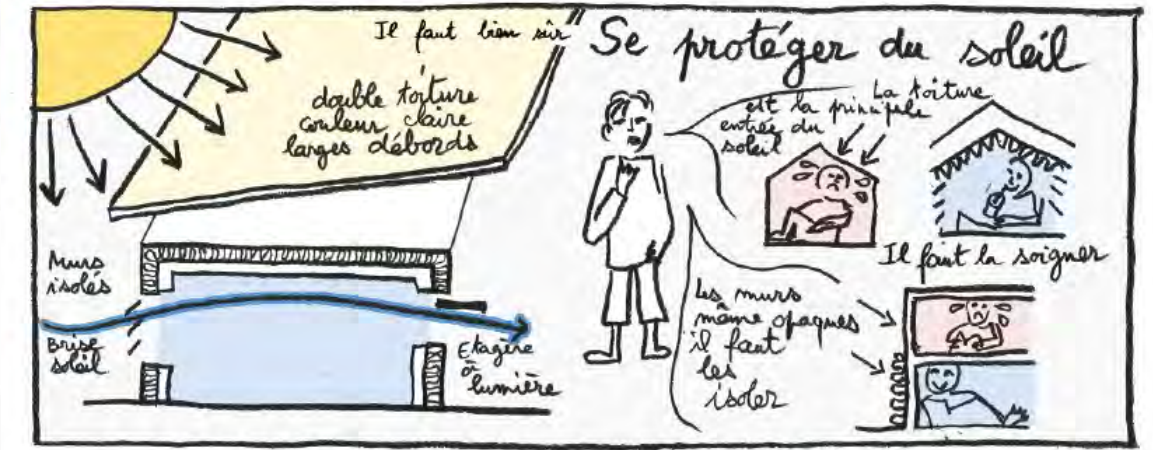 Il faut bien sûr
double toiture
couleur claire
larges débords
Murs
isolés
Brise
soleil
Etagère
à
lumière
Se protéger du soleil
La toiture
est la principale
entrée du
soleil
Il faut la soigner
Les murs
même opaques
il faut
les
isoler